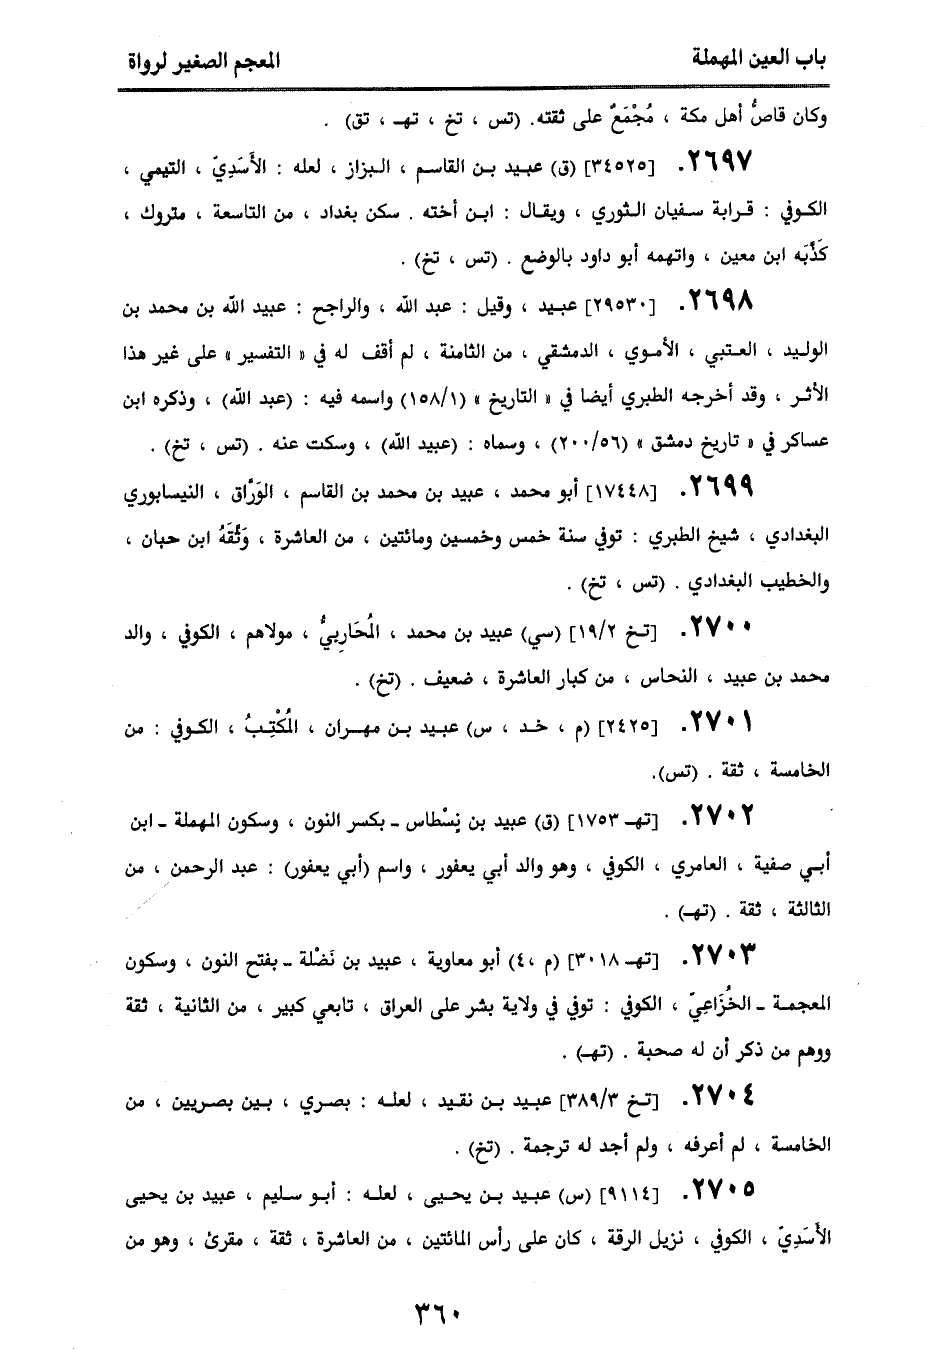 باب العين المهملة
المعجم الصغير لرواة
وكان قاصُّ أهل مكة ، مُجْمَعٌ على ثقته. (تس ، تخ ، تهـ ، تق) .
٢٦٩٧. [٣٤٥٢٥] (ق) عبيد بن القاسم ، البزاز ، لعله : الأَسَدِيّ ، التيمي ،
الكوفي : قرابة سفيان الثوري ، ويقال : ابن أخته . سكن بغداد ، من التاسعة ، متروك ،
كَذَّبَه ابن معين ، واتهمه أبو داود بالوضع . (تس ، تخ) .
٢٦٩٨. [٢٩٥٣٠] عبيد ، وقيل : عبد الله ، والراجح : عبيد الله بن محمد بن
الوليد ، العتبي ، الأموي ، الدمشقي ، من الثامنة ، لم أقف له في « التفسير » على غير هذا
الأثر ، وقد أخرجه الطبري أيضا في « التاريخ » (١٥٨/١) واسمه فيه : (عبد الله) ، وذكره ابن
عساكر في « تاريخ دمشق » (٢٠٠/٥٦) ، وسماه : (عبيد الله) ، وسكت عنه . (تس ، تخ) .
٢٦٩٩. [١٧٤٤٨] أبو محمد ، عبيد بن محمد بن القاسم ، الوَرَّاق ، النيسابوري
البغدادي ، شيخ الطبري : توفي سنة خمس وخمسين ومائتين ، من العاشرة ، وَثَّقَهُ ابن حبان ،
والخطيب البغدادي . (تس ، تخ) .
٢٧٠٠. [تخ ١٩/٢] (سي) عبيد بن محمد ، المُحَاربيُّ ، مولاهم ، الكوفي ، والد
محمد بن عبيد ، النحاس ، من كبار العاشرة ، ضعيف . (تخ) .
٢٧٠١. [٢٤٢٥] (م ، خد ، س) عبيد بن مهران ، المُكْتِبُ ، الكوفي : من
الخامسة ، ثقة . (تس).
٢٧٠٢. [تهـ ١٧٥٣] (ق) عبيد بن نِسْطاس ـ بكسر النون ، وسكون المهملة ـ ابن
أبي صفية ، العامري ، الكوفي ، وهو والد أبي يعفور ، واسم (أبي يعفور) : عبد الرحمن ، من
الثالثة ، ثقة . (تهـ) .
٢٧٠٣. [تهـ ٣٠١٨] (م ،٤) أبو معاوية ، عبيد بن نَضْلة ـ بفتح النون ، وسكون
المعجمة ـ الخُزَاعِيّ ، الكوفي : توفي في ولاية بشر على العراق ، تابعي كبير ، من الثانية ، ثقة
ووهم من ذكر أن له صحبة . (تهـ) .
٢٧٠٤. [تخ ٣٨٩/٣] عبيد بن نقيد ، لعله : بصري ، بين بصريين ، من
الخامسة ، لم أعرفه ، ولم أجد له ترجمة . (تخ) .
٢٧٠٥. [٩١١٤] (س) عبيد بن يحيى ، لعله : أبو سليم ، عبيد بن يحيى
الأَسَدِيّ ، الكوفي ، نزيل الرقة ، كان على رأس المائتين ، من العاشرة ، ثقة ، مقرئ ، وهو من
٣٦٠